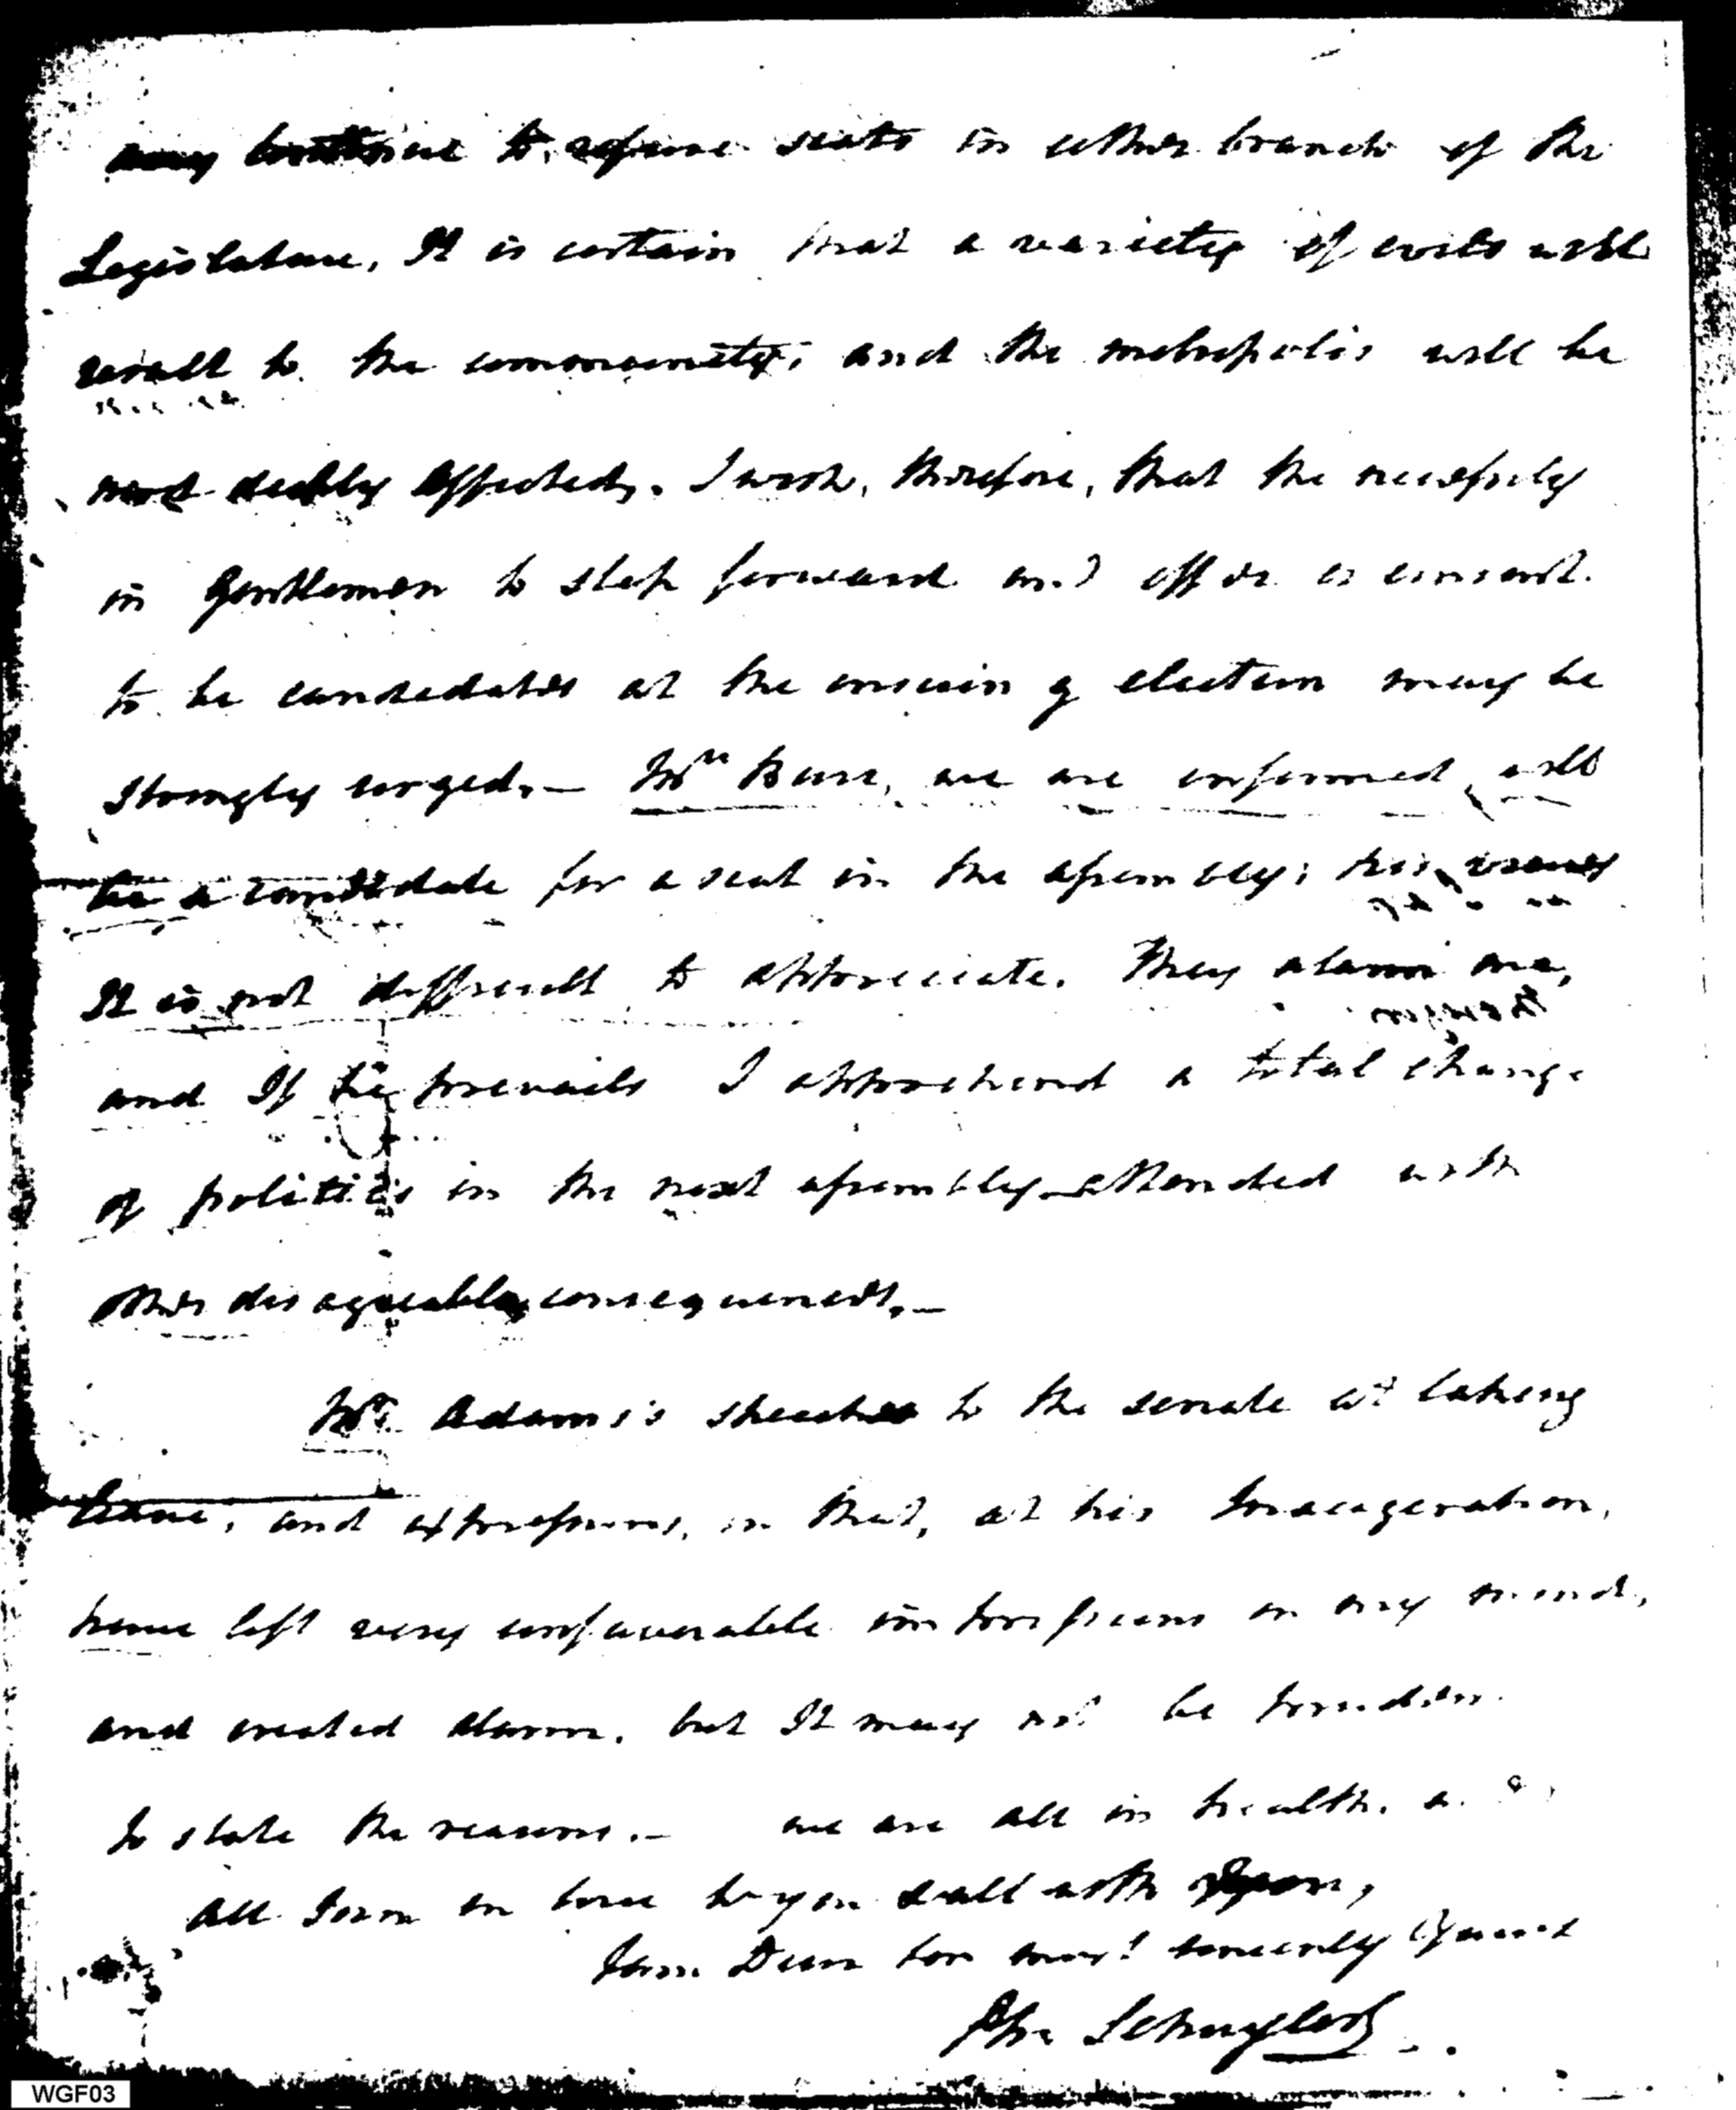 may continue to refuse seats in either branch of the
Legislature. It is certain that a variety of evils will
result to the community, and the metropolis will be
most deeply affected. I wish, therefore, that the necessity
in Gentlemen to step forward and offer or consent
to be candidates at the ensuing election may be
strongly urged. — Mr Burr, we are informed, will
be a candidate for a seat in the assembly; his views
It is not difficult to appreciate. They alarm me,
and If he prevails I apprehend a total change
of politics in the next assembly — attended with
other disagreable consequences. —
Mr Adams's speeches to the senate at taking
leave, and expressions, in that, at his Inaugeration,
have left very unfavorable impressions on my mind,
and created alarm. but It may not be prudent
to state the reasons. — we are all in health.
All Join in love to you & all with you,
I am Dear Son most sincerely Yours
Ph: Schuyler
WGF03